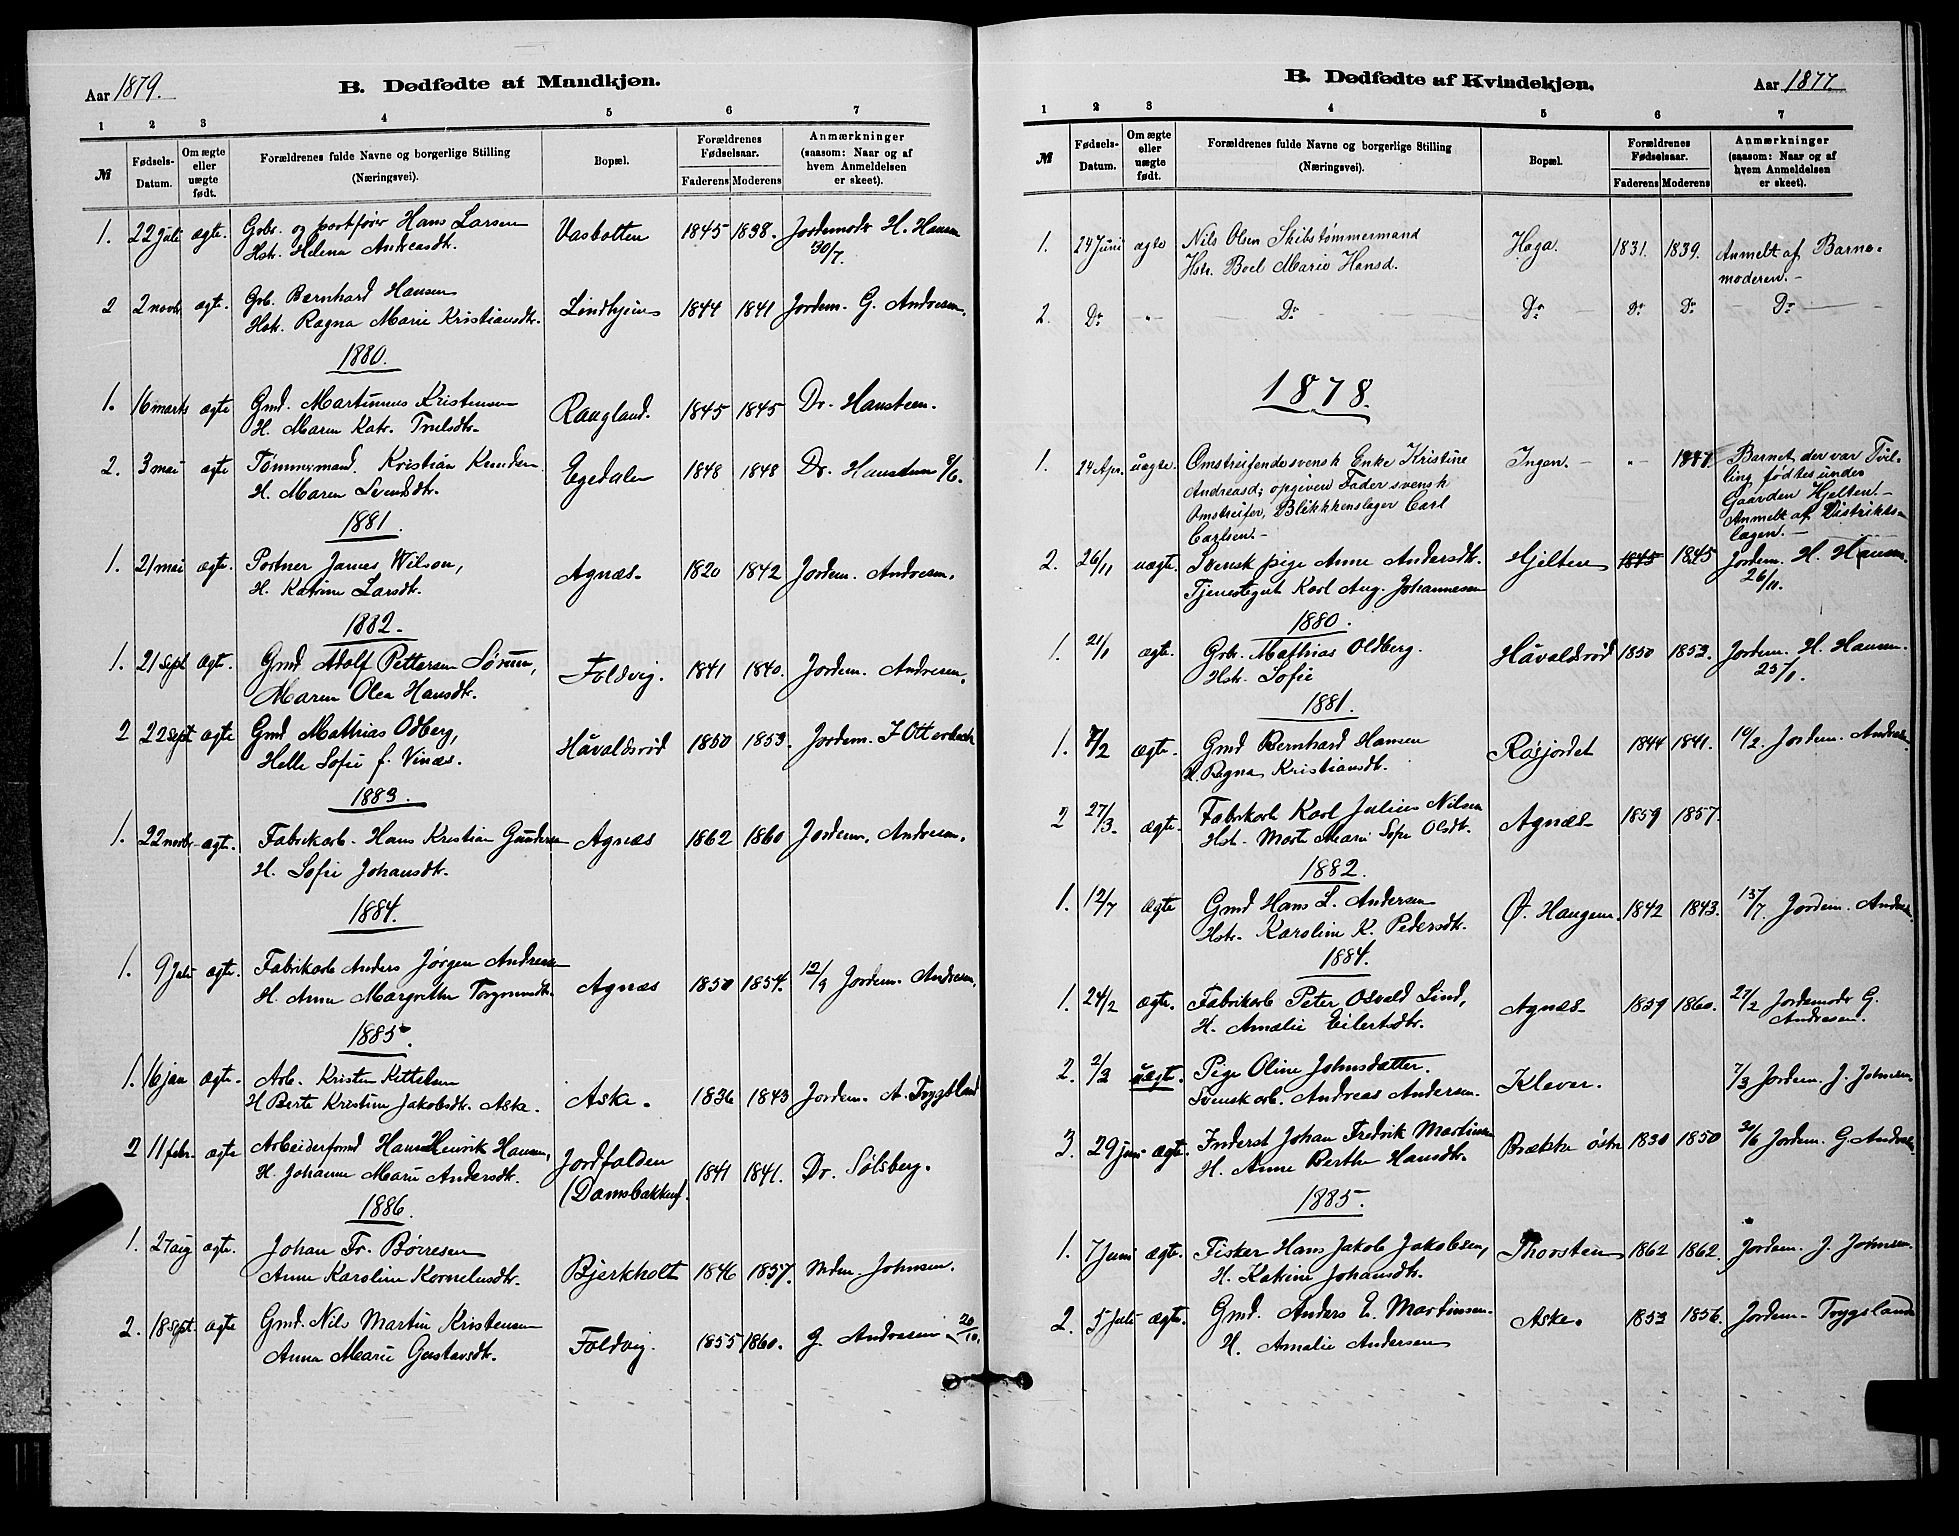 Aar 1879.
B. Dødfødte af Mandkjøn.
1 2 3 4 5 6 7
№
Fødsels-
Datum.
Om ægte
eller
uægte
født.
Forældrenes fulde Navne og borgerlige Stilling
(Næringsvei).
Bopæl.
Forældrenes
Fødselsaar.
Faderens Moderens
Anmærkninger
(saasom: Naar og af
hvem Anmeldelsen
er skeet).
1. 22 juli ægte. Gbr. og Hans Larsen Vasbotten 1845 1838. Jordemodr H. Hansen
Hstr. Helena Andreasdtr. 30/7.
2 2 novbr ægt. Grb. Bernhard Hansen Lindhjem 1844 1841 Jordem. G. Andresen.
Hstr. Ragna Marie Kristiansdtr.
1880.
1. 16 marts ægte Gmd. Martinius Kristensen Raagland. 1845 1845 Dr. Hansteen.
H. Maren Katr. Truelsdtr.
2. 3 mai ægte Tømmermand. Kristian Knudsen Egedalen 1848 1848 Dr. Hansteen 8/6.
H. Maren Svendsdtr.
1881.
1. 21 mai ægte. Portner James Wilson, Agnæs. 1820 1842 Jordem. Andresen.
H. Katrine Larsdtr.
1882.
1. 21 sept ægte. Gmd Adolf Pettersen Sørum, Foldvig. 1841 1840. Jordem. Andresen.
Maren Olea Hansdtr.
2 22 sept ægte Gmd Mathias Odberg, Håvaldsrød 1850 1853. Jordem. J Otterbech
Helle Sofie f. Vinæs.
1883.
1. 22 novbr ægt. Fabrikarb. Hans Kristian Gundersen Agnæs 1862 1860 Jordem. Andresen.
H. Sofie Johansdtr.
1884.
1. 9 Juli ægte. Fabrikarb Anders Jørgen Andresen Agnæs 1850 1854. 12/9 Jordem. Andresen.
H. Anna Margrethe Torgrimsdtr.
1885.
1. 16 jan ægte. Arb. Kristen Kittelsen Aske. 1836 1843 Jordem. A. Trygsland
H Berte Kristine Jakobsdtr. Aske.
2 11 febr. ægte Arbeiderformd Hans Henrik Hansen, Jordfalden 1841 1841. Dr. Sølsberg.
H. Johanne Marie Andersdtr. (Damsbakken).
1886.
1. 27 aug ægte. Johan Fr. Børresen Bjerkholt 1846 1857. Mdm. Johnsen.
Anne Karoline Kornelusdtr.
2. 18 sept. ægte Gmd. Nils Martin Kristensen Foldvig. 1855 1860. G. Andresen 20/10.
Anna Marie Gustavsdtr.
B. Dødfødte af Kvindekjøn.
Aar 1877.
1 2 3 4 5 6 7
№
Fødsels-
Datum.
Om ægte
eller
uægte
født.
Forældrenes fulde Navne og borgerlige Stilling
(Næringsvei).
Bopæl.
Forældrenes
Fødselsaar.
Faderens Moderens
Anmærkninger
(saasom: Naar og af
hvem Anmeldelsen
er skeet).
1. 24 Juni ægte Nils Olsen Skibstømmermand Haga. 1831. 1839. Anmelt af Barne-
Hstr. Boel Marie Hansd. moderen.-
2. Do - Do - Do - Do Do - Do -
1878.
1. 24 Apr. uægte. Omstreifende svensk Enke Kristine Ingen.- - 1847. Barnet, der var Tvil-
Andreasd; opgiven Fader svensk ling, fødtes under
Omstreifer, Blikkenslager Carl Gaarden Hjelten.-
Carlsen.- Anmelt af Distrikts-
lægen.-
2. 26/11 uægte. Svensk pige Anne Andersdtr. Hjelten 1845 1845 Jordem. H. Hansen
Tjenestegut Karl Aug. Johannesen 26/11.
1880.
1. 21/1 ægte. Grbr. Mathias Oldberg. Håvaldsrød 1850 1853. Jordem. H. Hansen.
Hstr. Sofie 25/1.
1881.
1. 7/2 ægte. Gmd Bernhard Hansen Røsjordet 1844 1841. 10/2. Jordem. Andresen
H. Ragna Kristiansdtr.
2 27/3. ægte. Fabrikarb Karl Julius Nilsen Agnæs 1859 1857.
Hstr. Marte Marie Sofie Olsdtr.
1882.
1. 12/7 ægte Gmd Hans L. Andersen Ø. Haugene. 1842 1843. 13/7. Jordem. Andresen
Hstr. Karoline K. Pedersdtr.
1884.
1. 24/2 ægte. Fabrikarb Peter Osvald Lind, Agnæs 1859 1860. 27/2 Jordemodr G.
H. Amalie Eilertsdtr. Andresen.
2. 2/3 uægt. Pige Oline Johnsdatter. Klever. 7/3 Jordem. J. Johnsen.
Svensk arb. Andreas Andersen.
3. 29 juni ægte. Inderst Johan Fredrik Martinsen Brække østre 1830 1850 30/6 Jordem. G Andresen
H. Anne Berthe Hansdtr.
1885.
1. 7 Juni ægte. Fisker Hans Jakob Jakobsen, Thorsten 1862 1862. Jordem. J. Johnsen.
H. Katrine Johansdtr.
2. 5 Juli ægte. Gmd. Anders E. Martinsen. Aske. 1853 1856. Jordem. Trygsland
H. Amalie Andersen